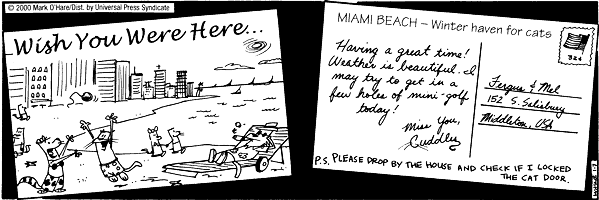 © 2000 Mark O'Hare/Dist. by Universal Press Syndicate
Wish You Were Here...
MIAMI BEACH – Winter haven for cats
Having a great time!
Weather is beautiful. I
may try to get in a
few holes of mini-golf
today!
Miss you,
Cuddles
32¢
Fergus & Mel
152 S. Salisbury
Middleton, USA
P.S. PLEASE DROP BY THE HOUSE AND CHECK IF I LOCKED
THE CAT DOOR.